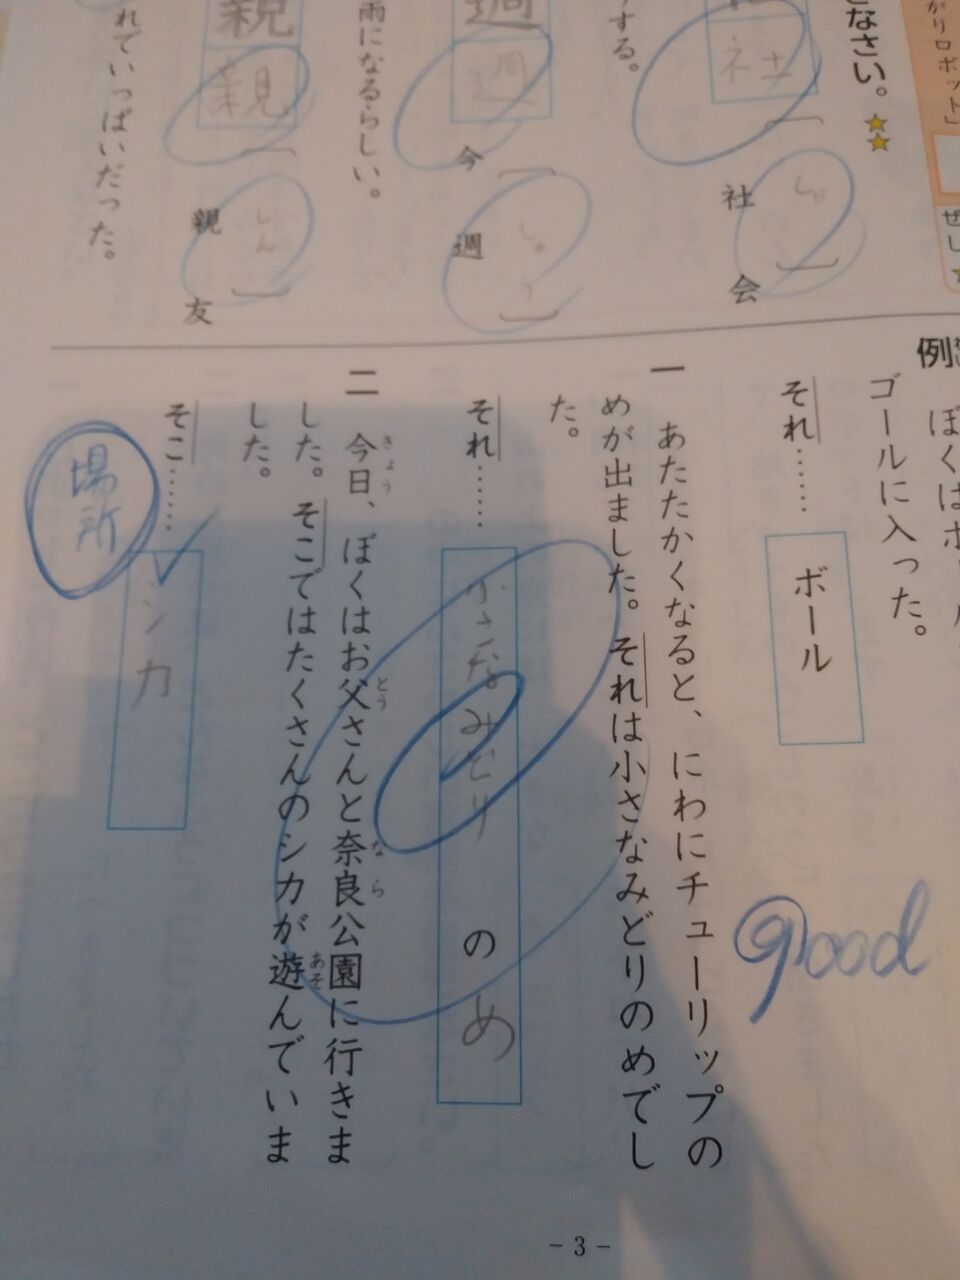 がりロボット」
ぜし
なさい。
社
社
社会
しゃ
する。
週
週
今週
しゅう
雨になるらしい。
親
親
親友
しん
れていっぱいだった。
例
ぼくはボール
ゴールに入った。
それ……
ボール
一
あたたかくなると、にわにチューリップの
めが出ました。それは小さなみどりのめでし
た。
それ……
小さなみどり の め
二
今日、ぼくはお父さんと奈良公園に行きま
きょう とう なら
した。そこではたくさんのシカが遊んでいま
あそ
した。
そこ……
シカ
場所
good
- 3 -